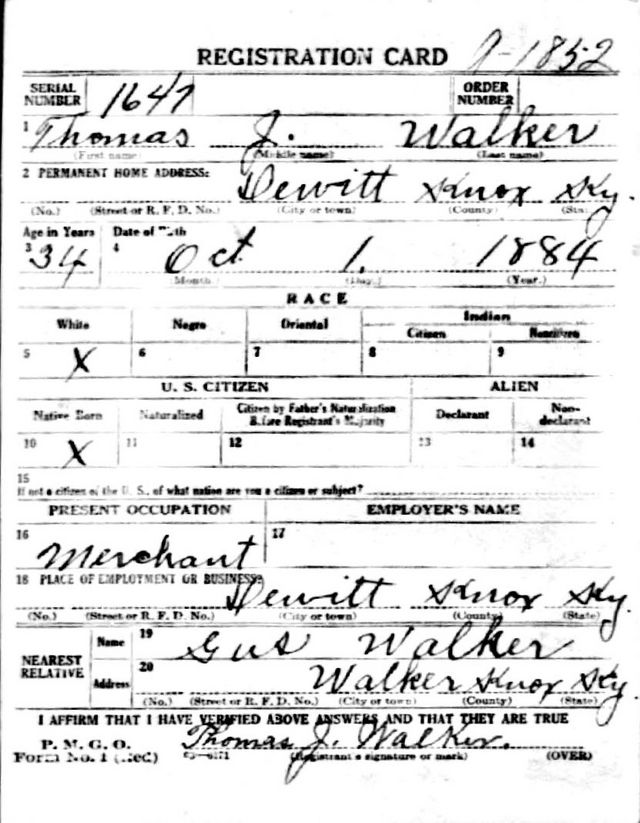 REGISTRATION CARD A-1852
SERIAL NUMBER 1647 ORDER NUMBER
1 Thomas J. Walker
(First name) (Middle name) (Last name)
2 PERMANENT HOME ADDRESS: Dewitt Knox Ky.
(No.) (Street or R. F. D. No.) (City or town) (County) (State)
Age in Years Date of Birth
3 34 4 Oct 1. 1884
Month. (Day.) (Year.)
RACE
White Negro Oriental Indian
Citizen Noncitizen
5 X 6 7 8 9
U. S. CITIZEN ALIEN
Native Born Naturalized Citizen by Father's Naturalization Before Registrant's Majority Declarant Non-declarant
10 X 11 12 13 14
15
If not a citizen of the U. S., of what nation are you a citizen or subject?
PRESENT OCCUPATION EMPLOYER'S NAME
16 Merchant 17
18 PLACE OF EMPLOYMENT OR BUSINESS: Dewitt Knox Ky.
(No.) (Street or R. F. D. No.) (City or town) (County) (State)
NEAREST RELATIVE Name 19 Gus Walker
Address 20 Walker Knox Ky.
(No.) (Street or R. F. D. No.) (City or town) (County) (State)
I AFFIRM THAT I HAVE VERIFIED ABOVE ANSWERS AND THAT THEY ARE TRUE
P. M. G. O.
Form No. 1 (Red) 03—6171 Thomas J. Walker.
(Registrant's signature or mark) (OVER)